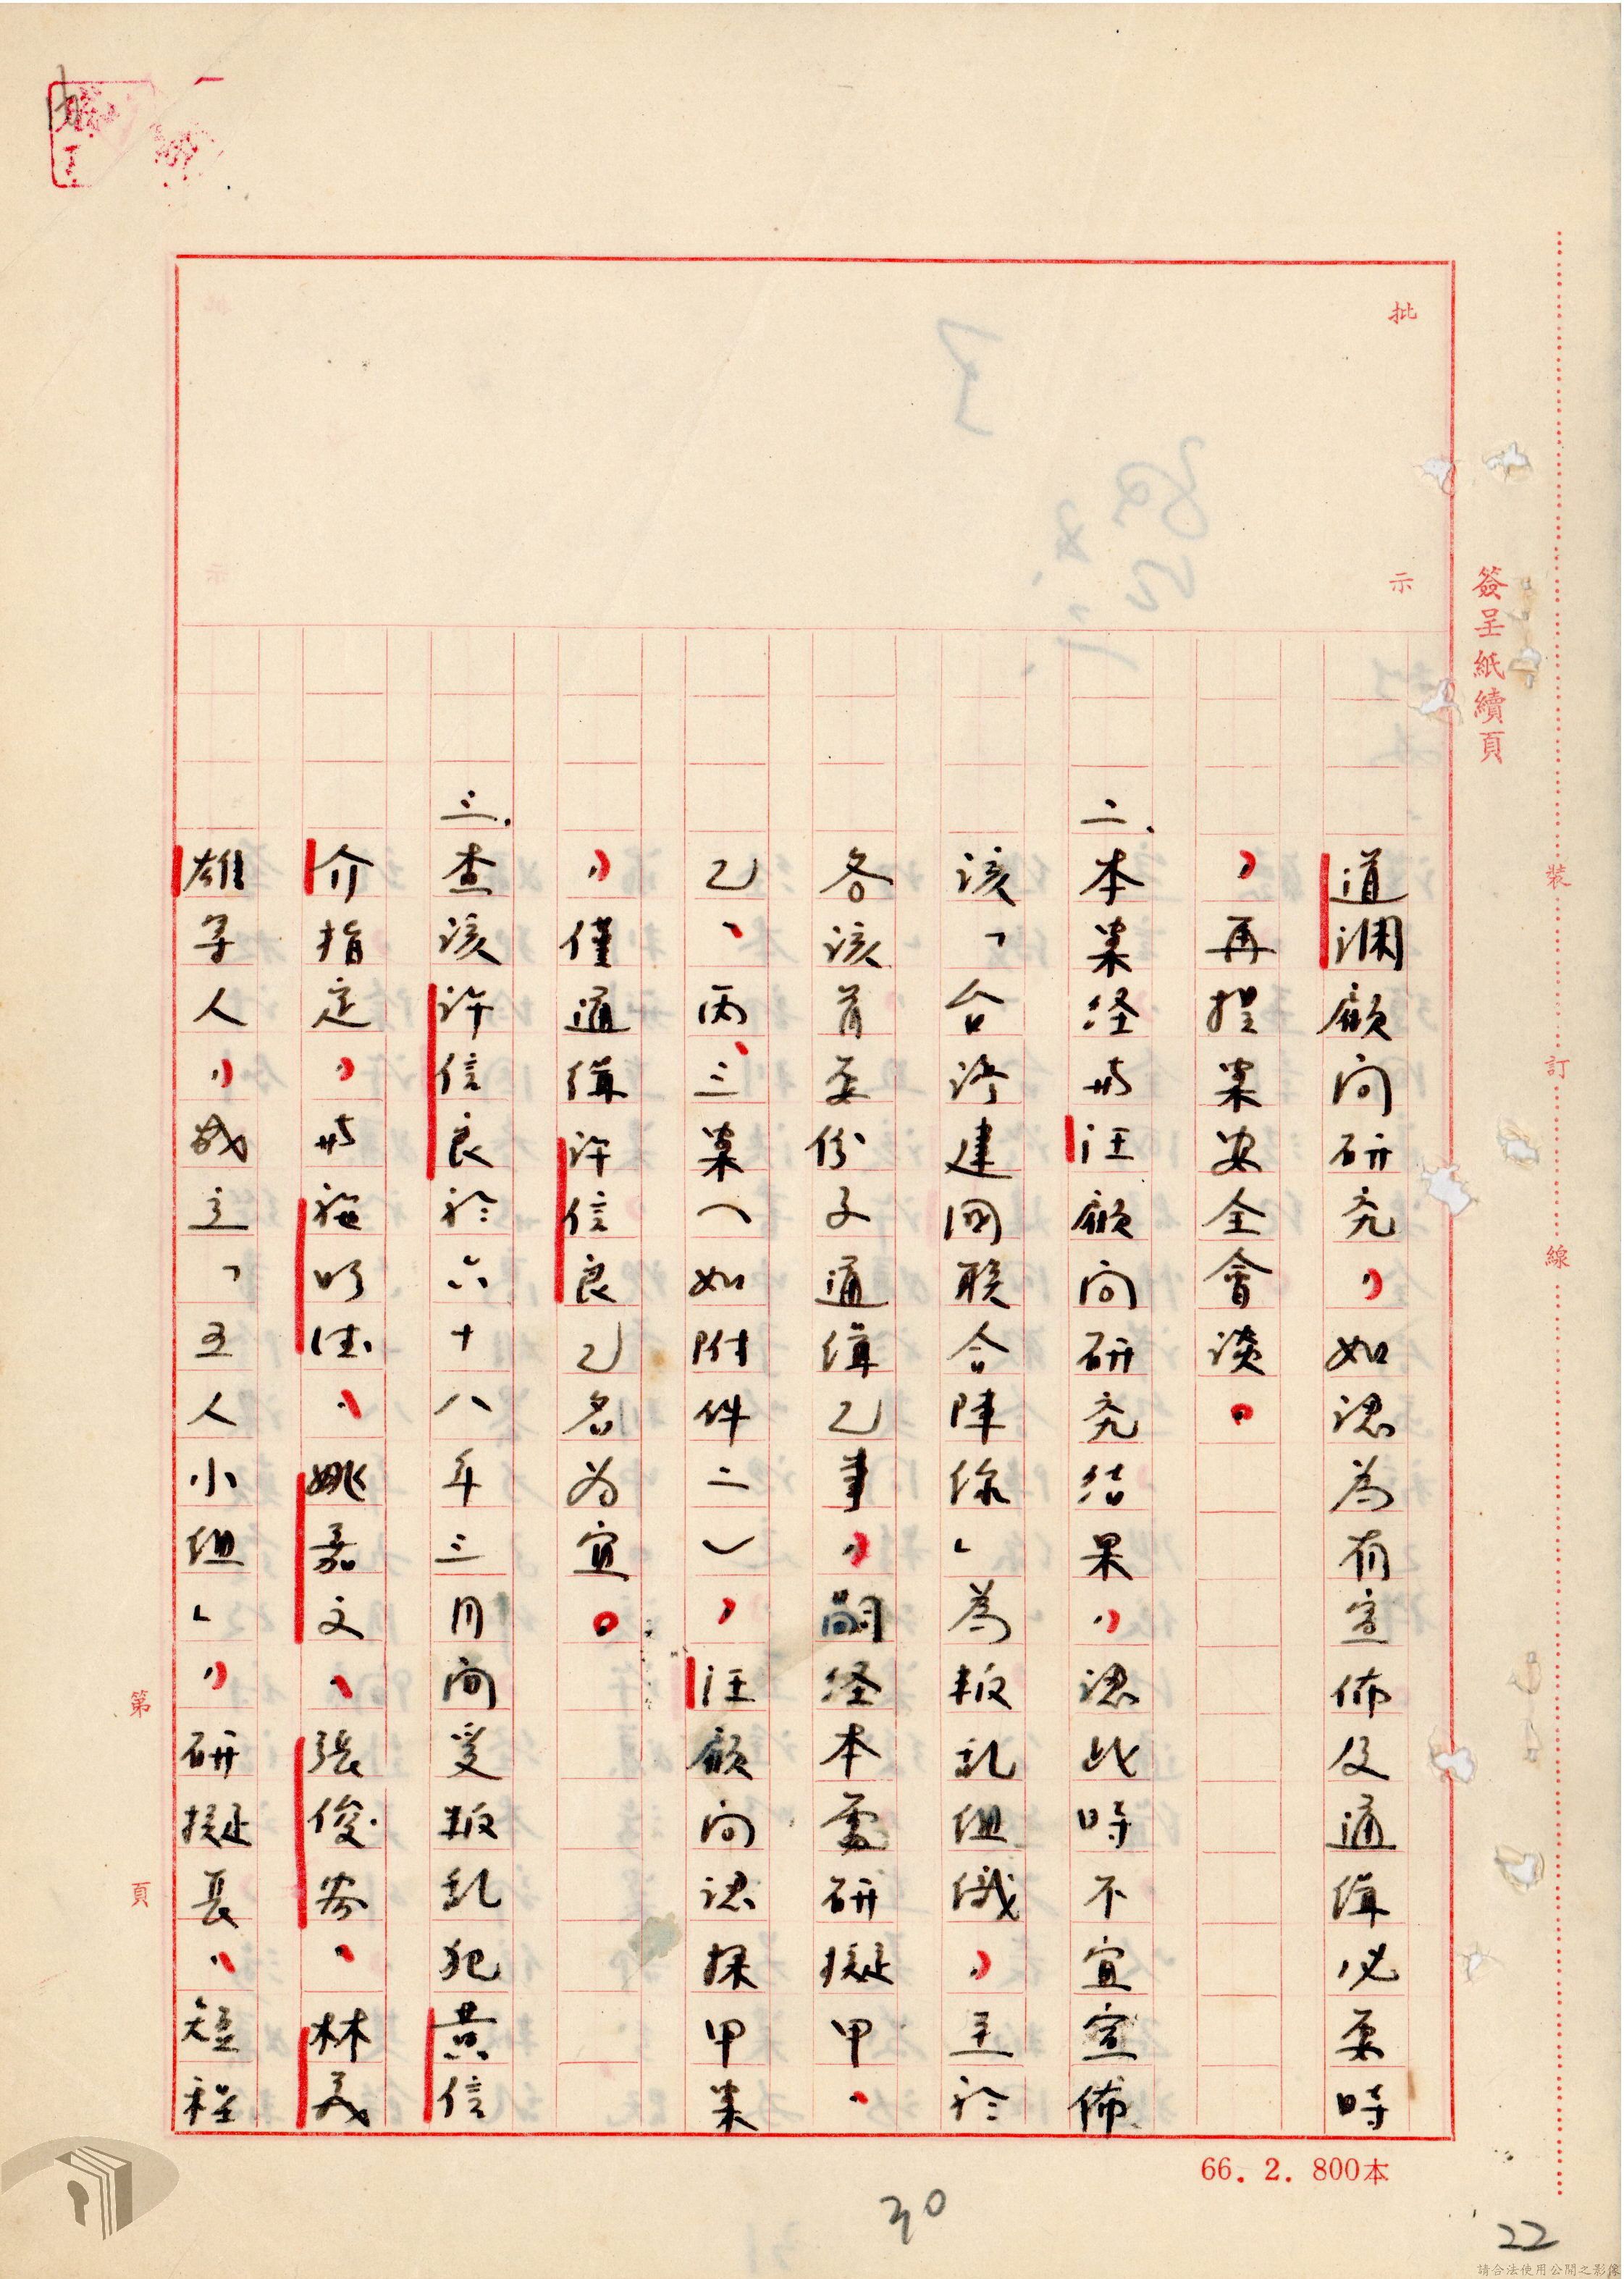 簽呈紙續頁
裝
訂
線
批
示
道淵顧问研究，如認為有宣佈及通缉必要時
，再提案安全會談。
二.本案经與汪顧问研究结果，認此時不宜宣佈
該「台湾建国联合陣線」為叛乱组织，至於
各該首要份子通缉乙事，嗣经本處研擬甲、
乙、丙、三案（如附件二），汪顧问認採甲案
，僅通缉许信良乙名为宜。
三.查該许信良於六十八年三月间受叛乱犯黄信
介指定，與施明德、姚嘉文、張俊宏、林義
雄等人，成立「五人小组」，研擬長、短程
第
頁
66. 2. 800本
30
22
請合法使用公開之影像